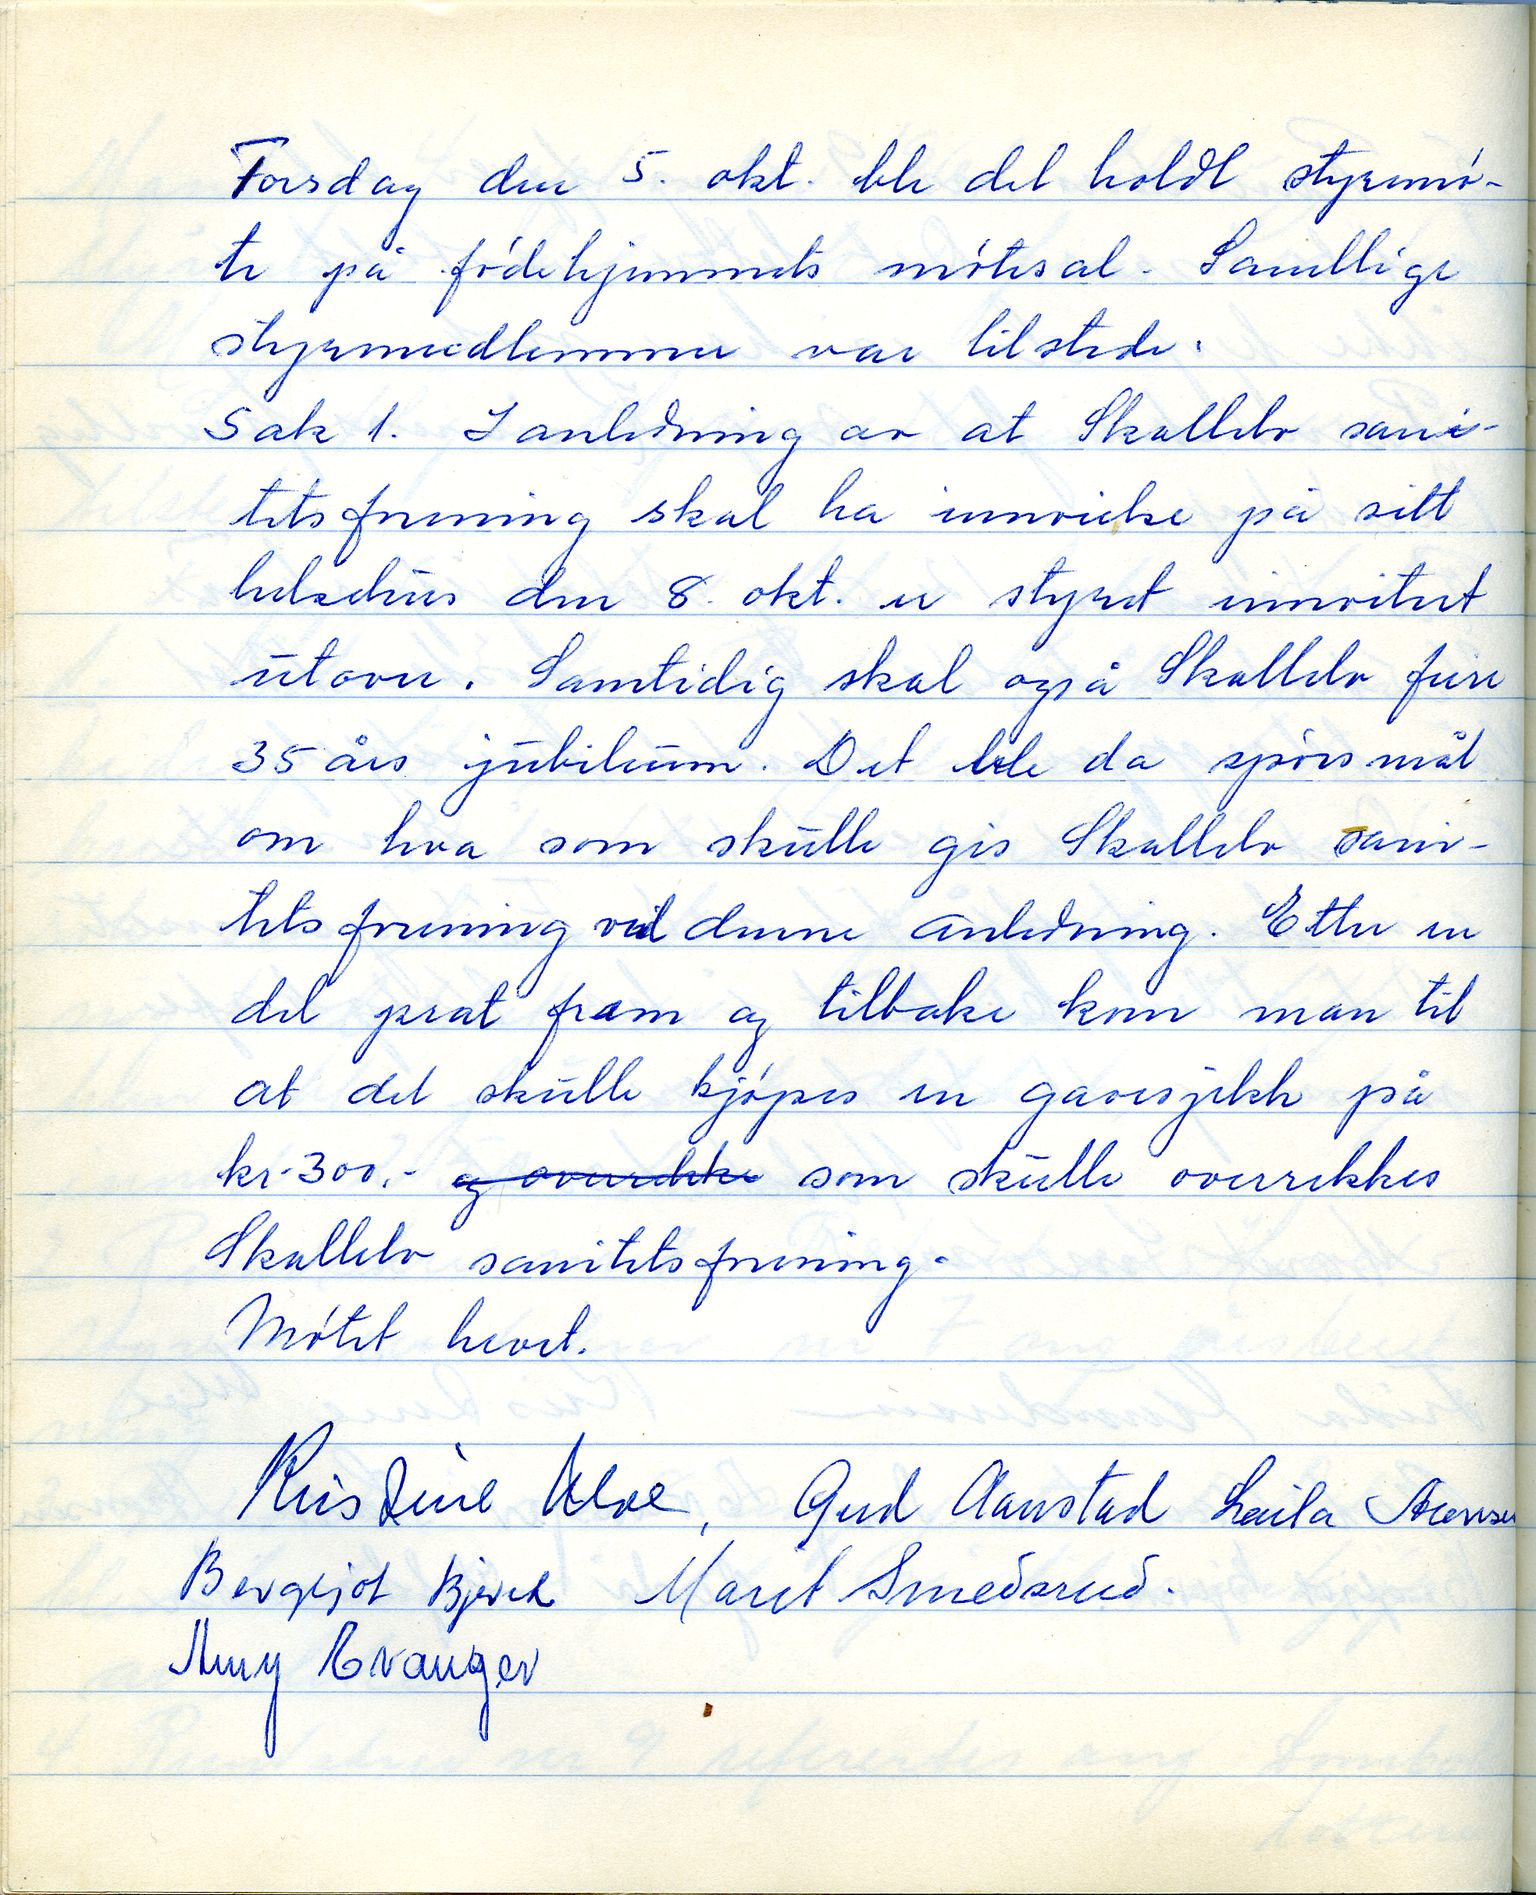 Torsdag den 5. okt. ble det holdt styremø-
te på fødehjemmets møtesal. Samtlige
styremedlemmer var tilstede.
Sak 1. I anledning av at Skallelv sani-
tetsforening skal ha innvielse på sitt
helsehus den 8. okt. er styret innvitert
utover. Samtidig skal også Skallelv feire
35 års jubileum. Det ble da spørsmål
om hva som skulle gis Skallelv sani-
tetsforening ved denne anledning. Etter en
del prat fram og tilbake kom man til
at det skulle kjøpes en gavesjekk på
kr. 300,- og overrekke som skulle overrekkes
Skallelv sanitetsforening.
Møtet hevet.
Kristine Uloe, Gud Aanstad Laila
Bergljot Bjerck Marit Smedsrud.
Amy Evanger